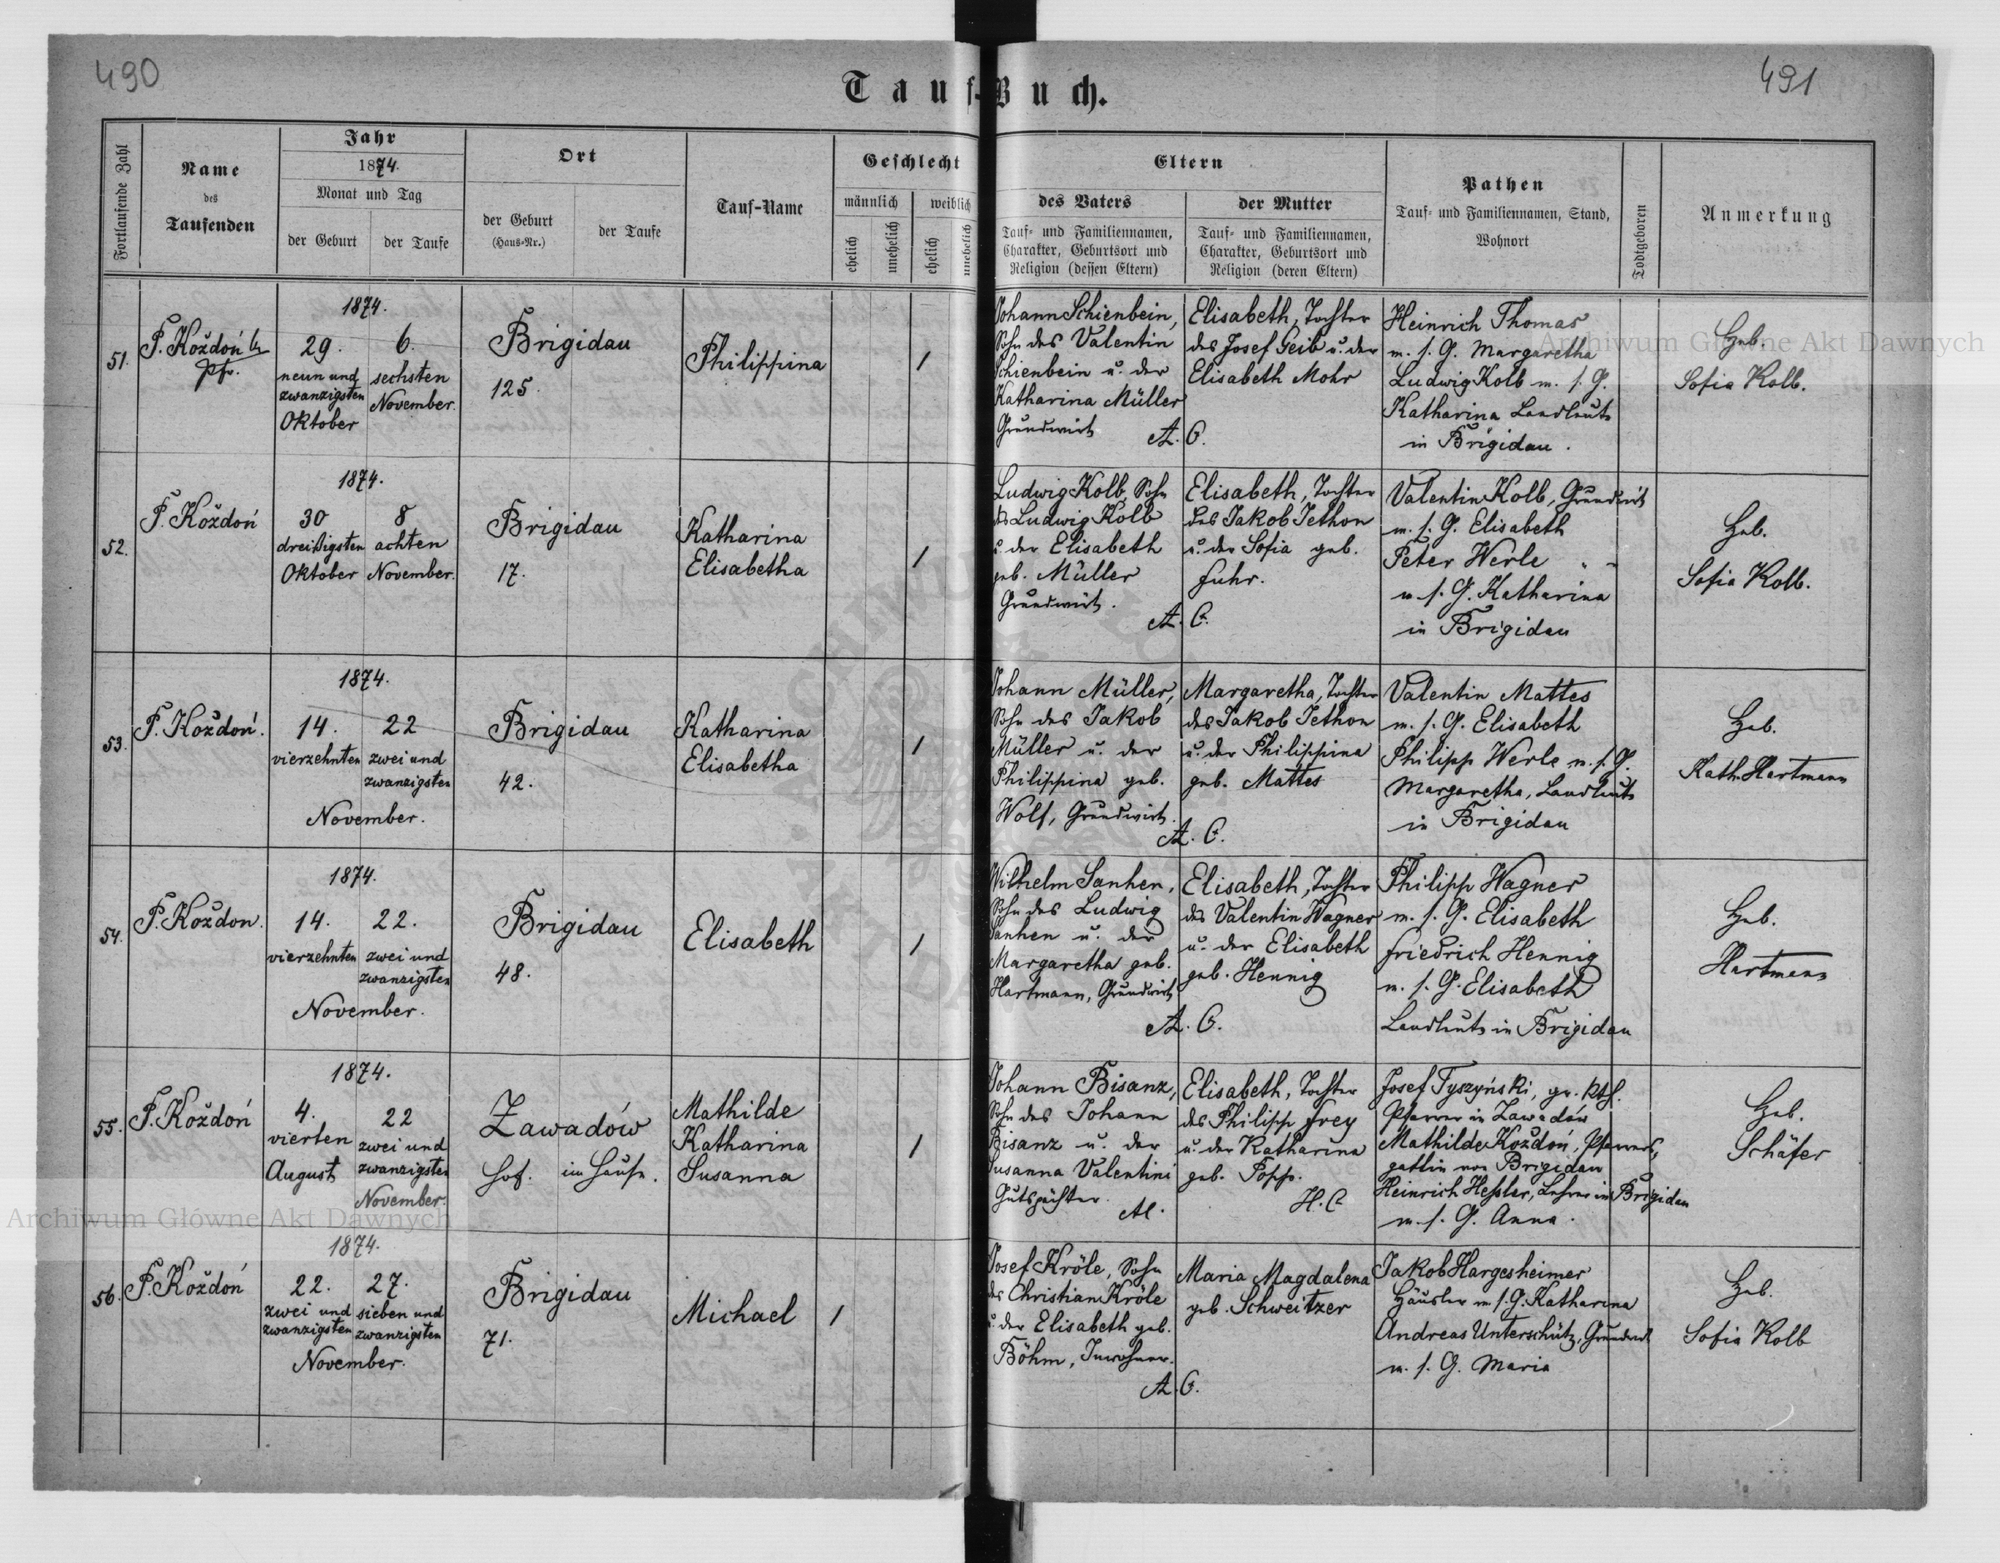 490
491
Tauf-Buch.
Fortlaufende Zahl
Name
des
Taufenden
Jahr
1874.
Monat und Tag
der Geburt
der Taufe
Ort
der Geburt
(Haus-Nr.)
der Taufe
Tauf-Name
Geschlecht
männlich
weiblich
ehelich
unehelich
ehelich
unehelich
Eltern
des Vaters
Tauf- und Familiennamen,
Charakter, Geburtsort und
Religion (dessen Eltern)
der Mutter
Tauf- und Familiennamen,
Charakter, Geburtsort und
Religion (deren Eltern)
Pathen
Tauf- und Familiennamen, Stand,
Wohnort
Todtgeboren
Anmerkung
51.
P. Koždoń
Pfr.
1874.
29.
neun und
zwanzigsten
Oktober
6.
sechsten
November.
Brigidau
125.
Philippina
/
Johann Schienbein,
Sohn des Valentin
Schienbein u. der
Katharina Müller
Grundwirt
A. C.
Elisabeth, Tochter
des Josef Geib u. der
Elisabeth Mohr
Heinrich Thomas
m. s. G. Margaretha
Ludwig Kolb m. s. G.
Katharina Landleute
in Brigidau.
Heb.
Sofia Kolb.
52.
P. Koždoń
1874.
30
dreißigsten
Oktober
8
achten
November.
Brigidau
17.
Katharina
Elisabetha
/
Ludwig Kolb, Sohn
des Ludwig Kolb
u. der Elisabeth
geb. Müller
Grundwirt.
A. C.
Elisabeth, Tochter
des Jakob Jethon
u. der Sofia geb.
Fuhr.
Valentin Kolb, Grundwirt
m. s. G. Elisabeth
Peter Werle " "
m. s. G. Katharina
in Brigidau
Heb.
Sofia Kolb.
53.
P. Koždoń.
1874.
14.
vierzehnten
22
zwei und
zwanzigsten
November.
Brigidau
42.
Katharina
Elisabetha
/
Johann Müller,
Sohn des Jakob
Müller u. der
Philippina geb.
Wolf, Grundwirt.
A. C.
Margaretha, Tochter
des Jakob Jethon
u. der Philippina
geb. Mattes
Valentin Mattes
m. s. G. Elisabeth
Philipp Werle m. s. G.
Margaretha, Landleute
in Brigidau
Heb.
Kath. Hartmann
54.
P. Koždon.
1874.
14.
vierzehnten
22.
zwei und
zwanzigsten
November.
Brigidau
48.
Elisabeth
/
Wilhelm Sanhen,
Sohn des Ludwig
Sanhen u. der
Margaretha geb.
Hartmann, Grundwirt
A. C.
Elisabeth, Tochter
des Valentin Wagner
u. der Elisabeth
geb. Hennig
Philipp Wagner
m. s. G. Elisabeth
Friedrich Hennig
m. s. G. Elisabeth
Landleute in Brigidau
Heb.
Hartmann
55.
P. Koždoń
1874.
4.
vierten
August
22
zwei und
zwanzigsten
November.
Zawadów
Hof. im Hause.
Mathilde
Katharina
Susanna
/
Johann Bisanz,
Sohn des Johann
Bisanz u. der
Susanna Valentini
Gutspächter.
Elisabeth, Tochter
des Philipp Frey
u. der Katharina
geb. Popp.
H. C.
Josef Tyszyński, gr. kth.
Pfarrer in Zawadów
Mathilde Koždoń, Pfarrers
gattin von Brigidau
Heinrich Heßler, Lehrer in Brigidau
m. s. G. Anna.
Heb.
Schäfer
56.
P. Koždoń
1874.
22.
zwei und
zwanzigsten
27.
sieben und
zwanzigsten
November.
Brigidau
71.
Michael
/
Josef Kröle, Sohn
des Christian Kröle
u. der Elisabeth geb.
Böhm, Inwohner.
A. C.
Maria Magdalena
geb. Schweitzer
Jakob Hargesheimer
Häusler m. s. G. Katharina
Andreas Unterschütz, Grundwirt
m. s. G. Maria
Heb.
Sofia Kolb
Archiwum Główne Akt Dawnych
Archiwum Główne Akt Dawnych